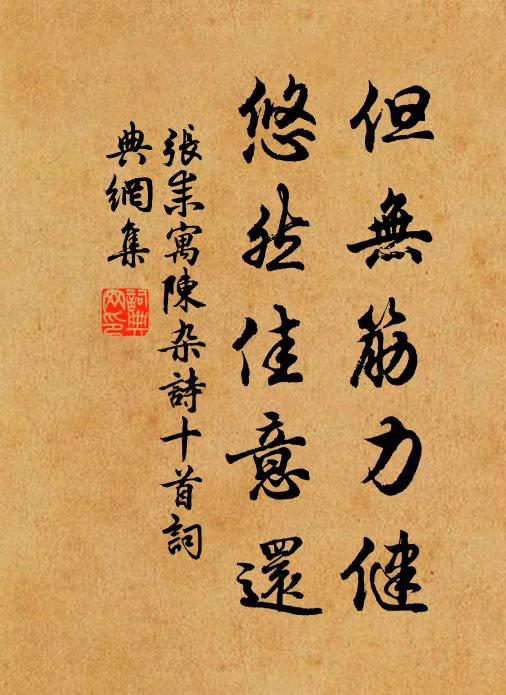 但無筋力健
悠然佳意還
張耒寓陳杂詩十首詞
典網集
詞典网印